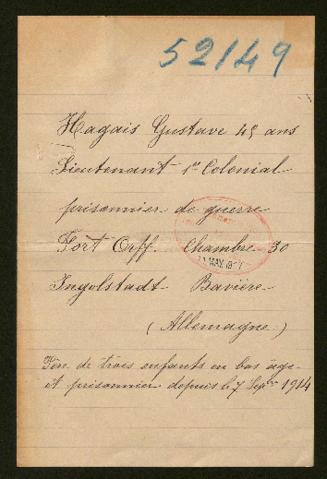 52149
Hagais Gustave 45 ans
Lieutenant 1er Colonial
prisonnier de guerre
Fort Orff Chambre 30
11 MAI 1917
Ingolstadt Bavière
(Allemagne)
Père de trois enfants en bas âge
et prisonnier depuis le 7 Sepbre 1914